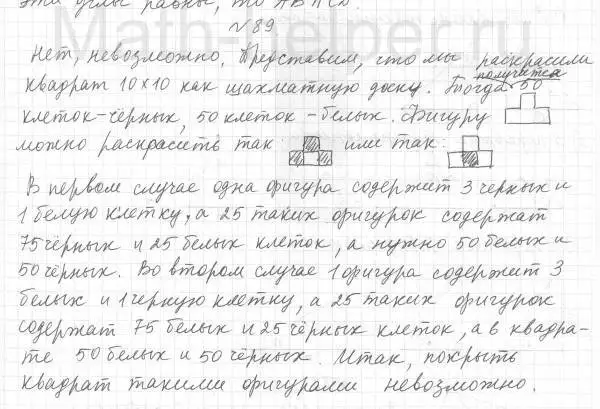 эти углы равны, то
№89.
Нет, невозможно. Представим, что мы раскрасили
квадрат 10×10 как шахматную доску. Тогда получится 50
клеток-чёрных, 50 клеток-белых. Фигуру
можно раскрасить так или так:
В первом случае одна фигура содержит 3 черных и
1 белую клетку, а 25 таких фигурок содержат
75 чёрных и 25 белых клеток, а нужно 50 белых и
50 чёрных. Во втором случае 1 фигура содержит 3
белых и 1 черную клетку, а 25 таких фигурок
содержат 75 белых и 25 чёрных клеток, а в квадра-
те 50 белых и 50 чёрных. Итак, покрыть
квадрат такими фигурами невозможно.
Math-helper.ru